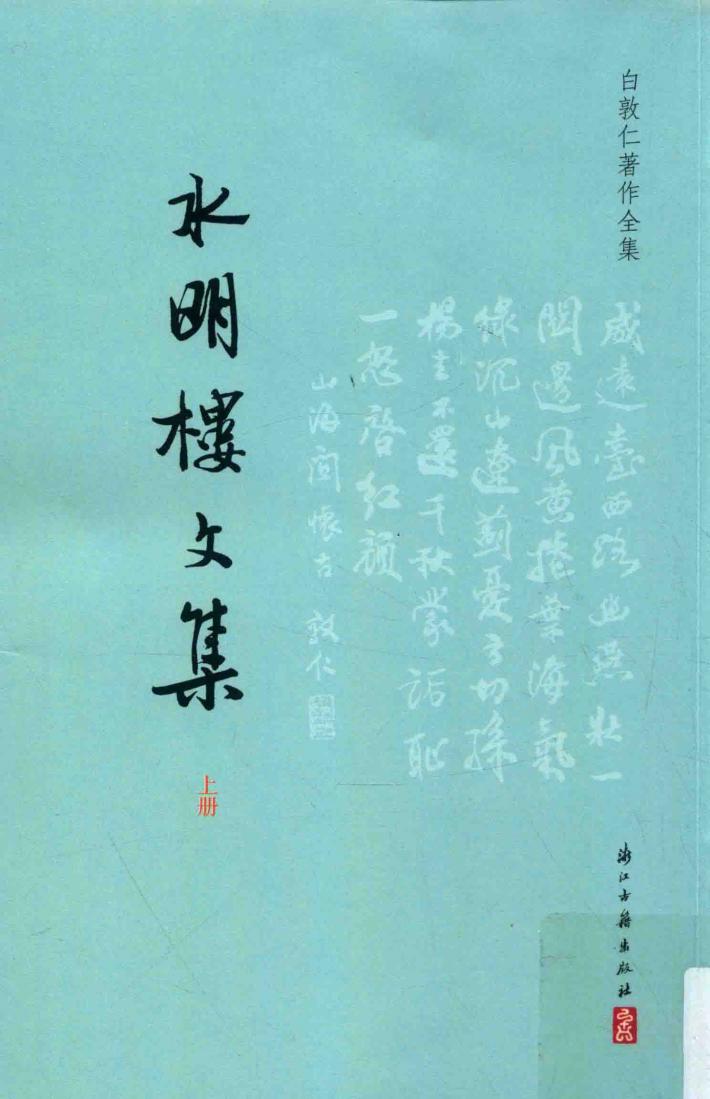 白敦仁著作全集
威遠臺西路幽燕壯一
關邊風黄捲葉海氣
綠沉山遼薊憂方切孫
楊去不還千秋話恥
一怒啓紅顏
山海關懷古 敦仁
水明樓文集
上册
浙江古籍出版社